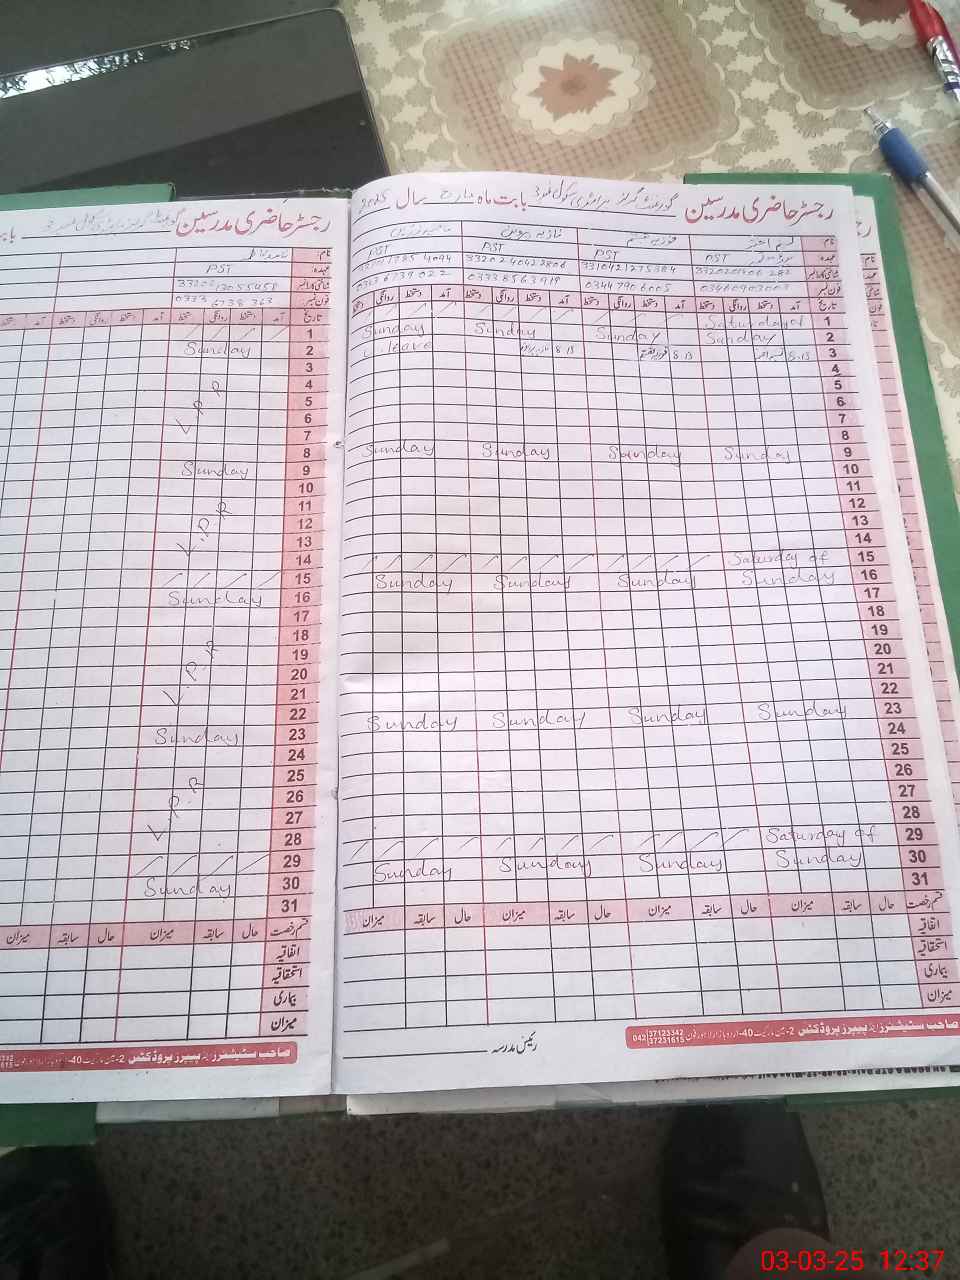 رجسٹر حاضری مدرسین گورنمنٹ گرلز پرائمری سکول بابت ماہ مارچ سال 2025
نام
عہدہ PST PST PST PST
شناختی کارڈ نمبر 3310421275384 3320240422806
فون نمبر 03460902003 03447906005 03338563919 03336739022
تاریخ آمد دستخط روانگی دستخط آمد دستخط روانگی دستخط آمد دستخط روانگی دستخط آمد دستخط روانگی دستخط
1 Saturday of
2 Sunday Sunday Sunday Sunday
3 8.15 8.15 8.15 leave
4
5
6
7
8
9 Sunday Sunday Sunday Sunday
10
11
12
13
14
15 Saturday of
16 Sunday Sunday Sunday Sunday
17
18
19
20
21
22
23 Sunday Sunday Sunday Sunday
24
25
26
27
28
29 Saturday of
30 Sunday Sunday Sunday Sunday
31
قسم رخصت حال سابقہ میزان حال سابقہ میزان حال سابقہ میزان حال سابقہ میزان
اتفاقیہ
استحقاقیہ
بیماری
میزان
صاحب سٹیشنرز اینڈ پیپرز پروڈکٹس 2- 40-اردو بازار لاہور فون 042 37123342
37231615
رئیس مدرسہ
رجسٹر حاضری مدرسین گورنمنٹ گرلز پرائمری سکول
نام
عہدہ PST
شناختی کارڈ نمبر 3320212055458
فون نمبر 0333 6738363
تاریخ آمد دستخط روانگی دستخط آمد دستخط روانگی دستخط آمد دستخط
1
2 Sunday
3
4
5
6
7
L.P.R
8
9 Sunday
10
11
12
13
14
L.P.R
15
16 Sunday
17
18
19
20
21
L.P.R
22
23 Sunday
24
25
26
27
28
L.P.R
29
30 Sunday
31
قسم رخصت حال سابقہ میزان حال سابقہ میزان
اتفاقیہ
استحقاقیہ
بیماری
میزان
صاحب سٹیشنرز اینڈ پیپرز پروڈکٹس 2- 40-اردو بازار لاہور فون
03-03-25 12:37